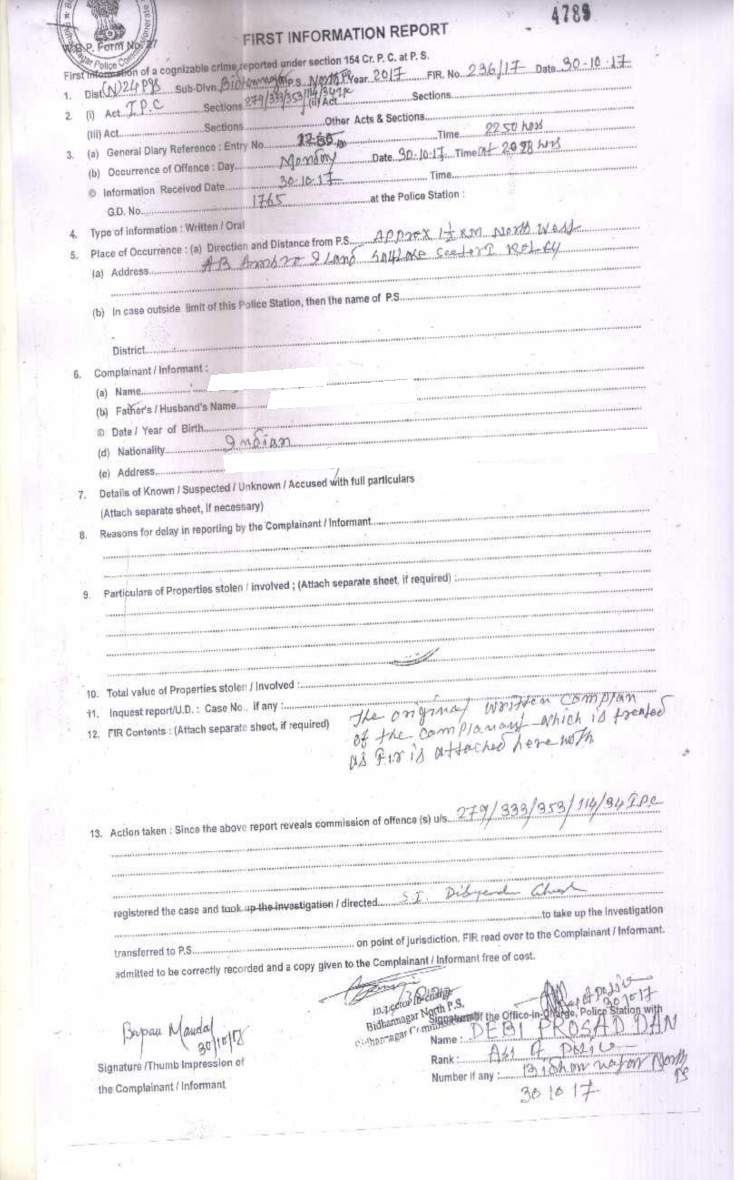 4789
FIRST INFORMATION REPORT
W.B.P. Form No. 27
First Information of a cognizable crime reported under section 154 Cr. P. C. at P. S.
1. Dist (N) 24 Pgs Sub-Divn. P.S. North PS Year 2017 FIR. No. 236/17 Date 30-10-17
2. (i) Act I.P.C Sections 279/333/353/114/34 IPC (ii) Act Sections
(iii) Act Sections Other Acts & Sections
3. (a) General Diary Reference : Entry No. Time 2250 hrs
(b) Occurrence of Offence : Day Monday Date 30-10-17 Time at hrs
© Information Received Date 30-10-17 Time
G.D. No. 1765 at the Police Station :
4. Type of information : Written / Oral
5. Place of Occurrence : (a) Direction and Distance from P.S. Approx 1½ KM North West
(a) Address Island Saltlake Sector I KOL-64
(b) In case outside limit of this Police Station, then the name of P.S.
District
6. Complainant / Informant :
(a) Name
(b) Father's / Husband's Name
© Date / Year of Birth
(d) Nationality Indian
(e) Address
7. Details of Known / Suspected / Unknown / Accused with full particulars
(Attach separate sheet, if necessary)
8. Reasons for delay in reporting by the Complainant / Informant
9. Particulars of Properties stolen / involved ; (Attach separate sheet, if required) :
10. Total value of Properties stolen / Involved :
11. Inquest report/U.D. : Case No., if any :
12. FIR Contents : (Attach separate sheet, if required) The original written complan
of the complanant which is treated
as Fir is attached here with
13. Action taken : Since the above report reveals commission of offence (s) u/s. 279/333/353/114/34 I.P.C
registered the case and took up the investigation / directed S.I. Dibyendu Ghosh
to take up the investigation
transferred to P.S. on point of jurisdiction. FIR read over to the Complainant / Informant.
admitted to be correctly recorded and a copy given to the Complainant / Informant free of cost.
Inspector In-charge
Bidhannagar North P.S.
Bidhannagar Commissionerate
30/10/17
Signature of the Office-in-Charge, Police Station with
Name : DEBI PROSAD DAN
Bapan Mandal
30/10/17
Rank : ASI of Police
Signature /Thumb Impression of
the Complainant / Informant
Number if any : Bidhan nagar North PS
30 10 17